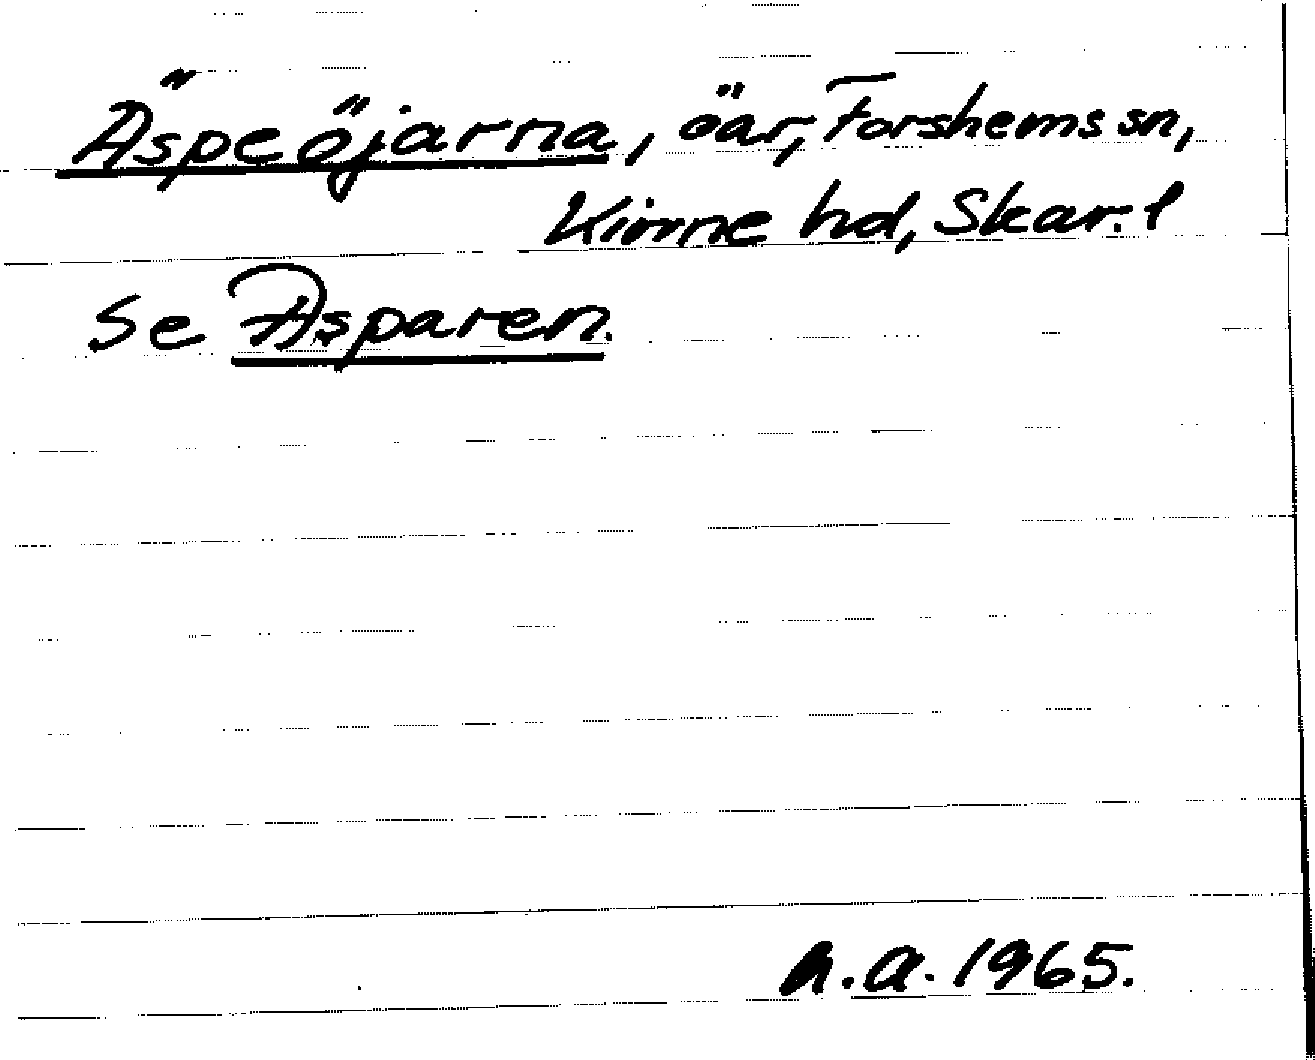 Äspeöjarna, öar, Forshems sn,
Kinne hd, Skar. l
Se Asparen.
A.A. 1965.